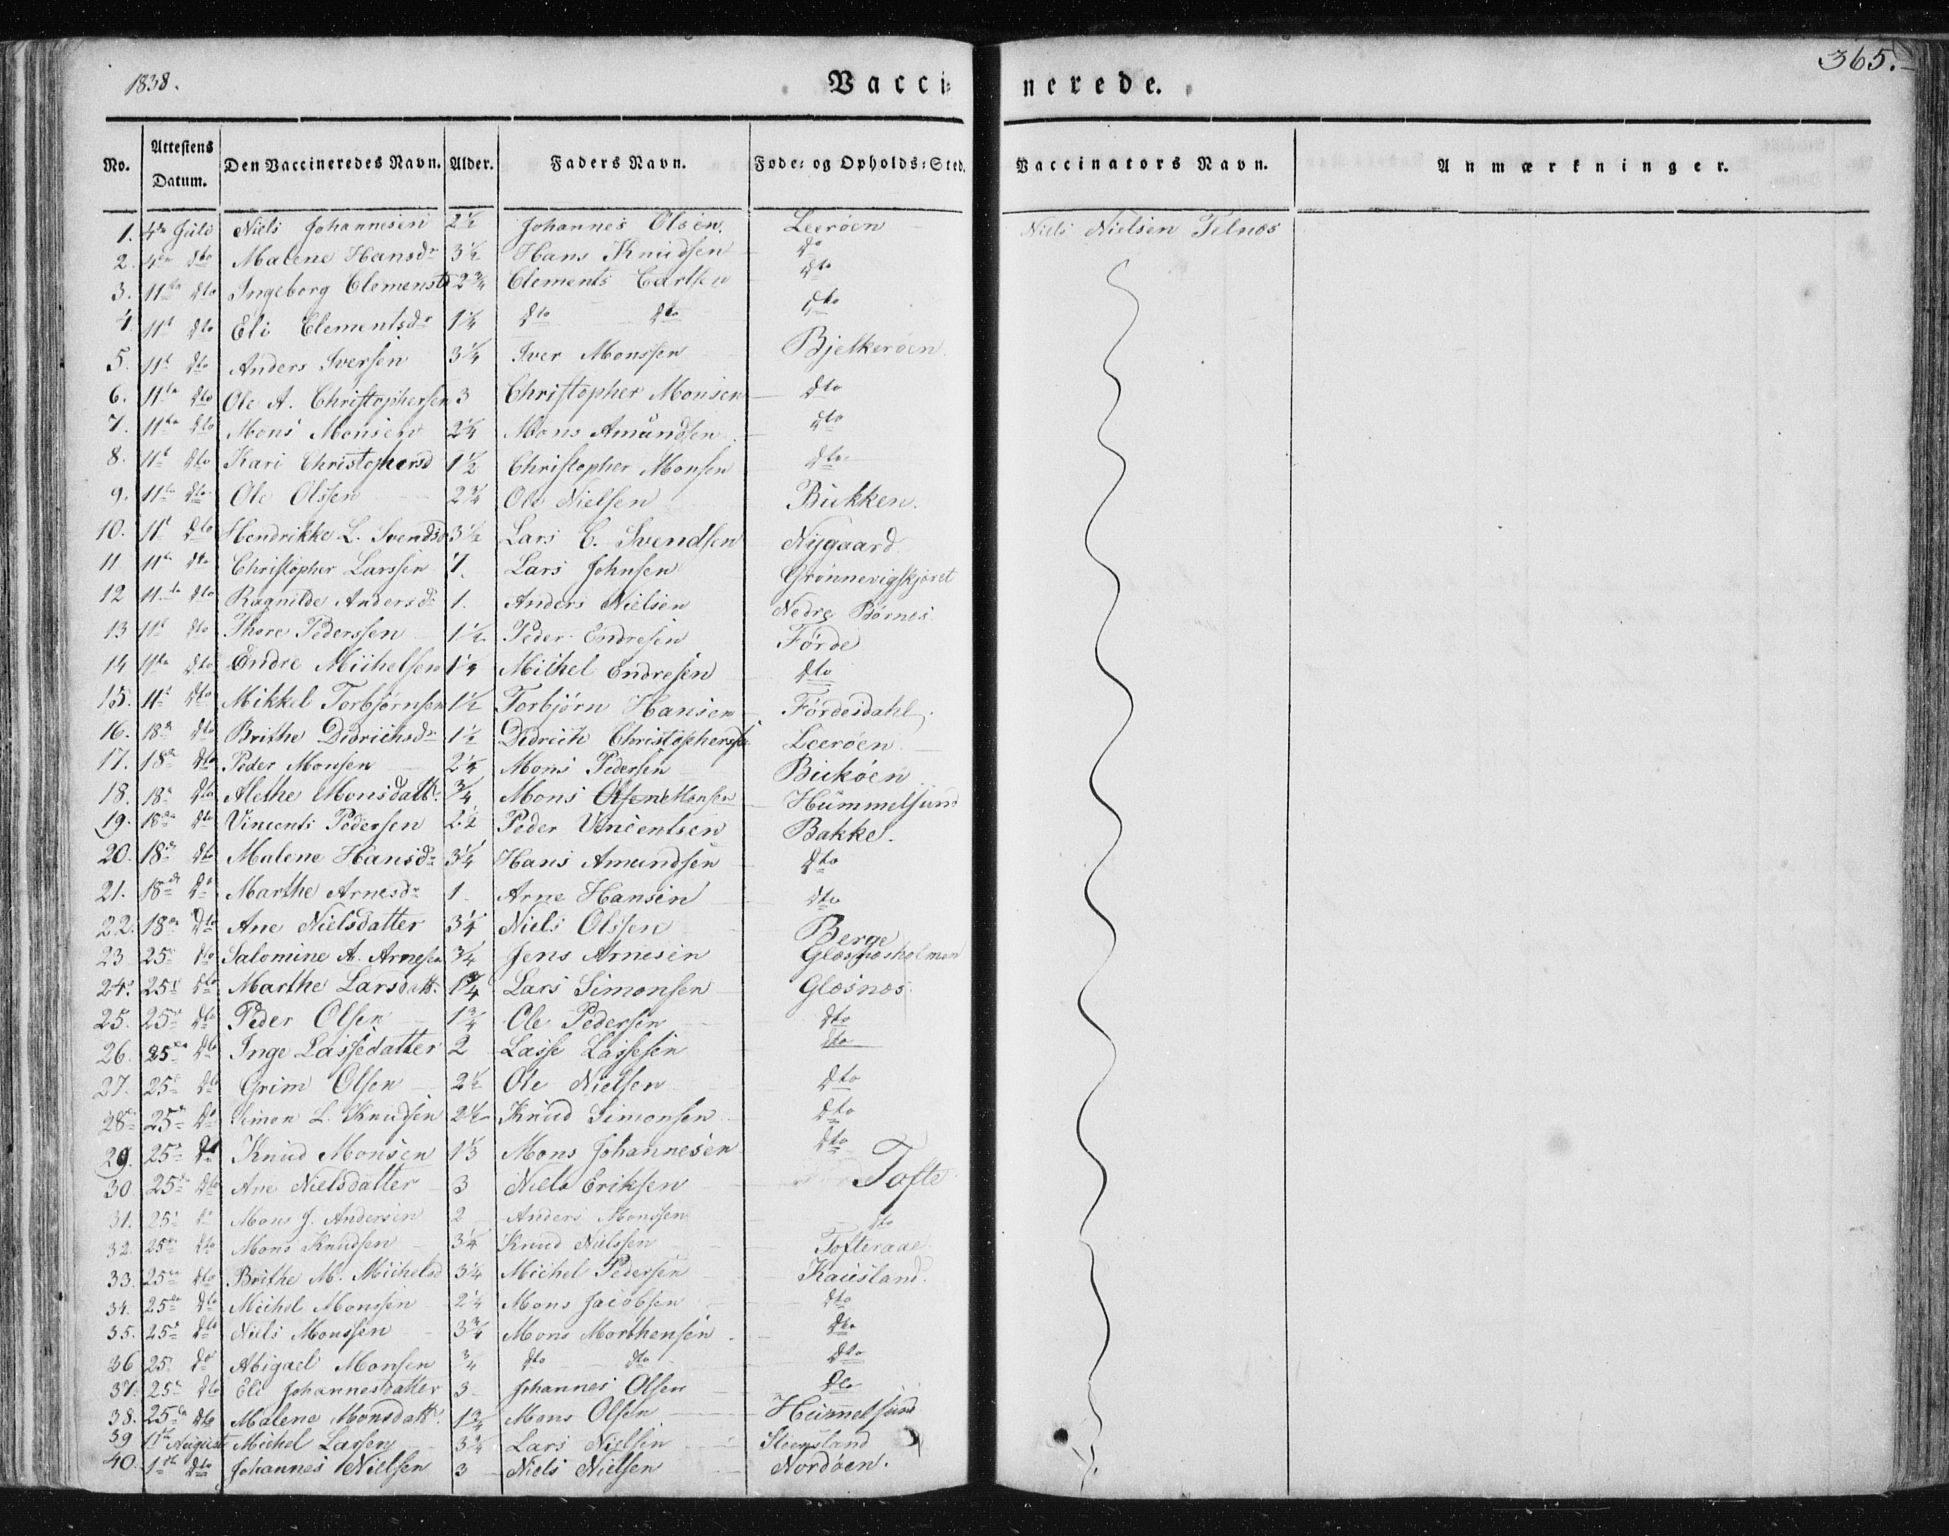 1838.
Vacci- nerede.
365.
No. Attestens Datum. Den Vaccineredes Navn. Alder. Faders Navn. Føde- og Opholds-Sted. Vaccinators Navn. Anmærkninger.
1. 4de Juli Niels Johannesen 2½ Johannes Olsen. Leerøen Niels Nielsen Telnæs
2. 4de dto Malene Hansdr 3½ Hans Knudsen do
3. 11te dto Ingeborg Clemensd 2¾ Clements Carlsen dto
4 11t dto Eli Clementsdr 1¼ dto dto dto
5. 11t dto Anders Iversen 3¼ Iver Monssen Bjelkerøen.
6. 11te dto Ole A. Christophersen 3 Christopher Monsen dto
7. 11te dto Mons Monsen 2¼ Mons Amundsen dto
8. 11t dto Kari Christophersd 1½ Christopher Monsen dto
9. 11te dto Ole Olsen 2¾ Ole Nielsen Bukken.
10. 11t dto Hendrikke L. Svendsd 3½ Lars C. Svendsen Nygaard
11 11te dto Christopher Larssen 7. Lars Johnsen Grønnevigskjæret
12 11te dto Ragnilde Andersdr 1. Anders Nielsen Nedre Børnes
13 11t dto Thore Pederssen 1½ Peder Endresen Førde
14 11te dto Endre Michelsen 1¼ Michel Endresen dto
15. 11t dto Mikkel Torbjørnsen 1½ Torbjørn Hansen Førdesdahl.
16. 18de dto Brithe Didrichsdr 1½ Didrich Christophersen Leerøen.
17. 18de dto Peder Monsen 2¼ Mons Pedersen Bukøen
18. 18de dto Alethe Monsdattr. ¾ Mons Olsen Monsen Hummelsund
19. 18de dto Vincents Pedersen 2½ Peder Vincentsen Bakke.
20. 18de dto Malene Hansdr 3¼ Hans Amundsen dto
21. 18de do Marthe Arnesdr 1. Arne Hansen dto
22. 18de dto Ane Nielsdatter 3¼ Niels Olssen Berge
23 25de dto Salomine A. Arnesen ¾ Jens Arnesen Glæsnæsholmen
24. 25de dto Marthe Larsdatt. 1¾ Lars Simonsen Glæsnæs.
25. 25de dto Peder Olsen 1¾ Ole Pedersen dto
26. 25de dto Inge Lassedatter 2 Lasse Lassesen dto
27. 25de dto Grim Olsen 2½ Ole Nielsen dto
28 25de do Simon L. Knudsen 2½ Knud Simonsen dto
29. 25de do Knud Monsen Mons Johannesen dto
30 25de dto Ane Nielsdatter 3 Niels Eriksen Tofte
31. 25de do Mons J. Andersen 2 Anders Monssen dto
32. 25de dto Mons Knudsen 3¼ Knud Nielssen Tofteraae
33. 25de dto Brithe M. Michelsd 3¼ Michel Pedersen Kausland.
34. 25de dto Michel Monssen 2¼ Mons Jacobsen dto
35. 25de dto Niels Monssen 3¾ Mons Morthensen dto
36 25de do Abigael Monsen ¾ dto dto dto
37. 25de dto Eli Johannesdatter 3 Johannes Olsen dto
38. 25de dto Malene Monsdatt. 1¾ Mons Olsen Hummelsund
39 1ste August Michel Larsen 3¾ Lars Nielsen Steensland
40. 1ste dto Johannes Nielsen 3 Niels Nielsen Nordøen.